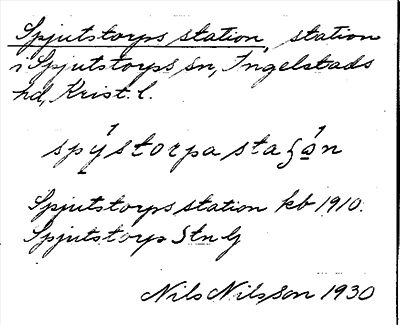 Spjutstorps station, station
i Spjutstorps sn, Ingelstads
hd, Krist. l.
spý̱storpa staʒ́a̱n
Spjutstorps station kb 1910.
Spjutstorp Stn G
Nils Nilsson 1930